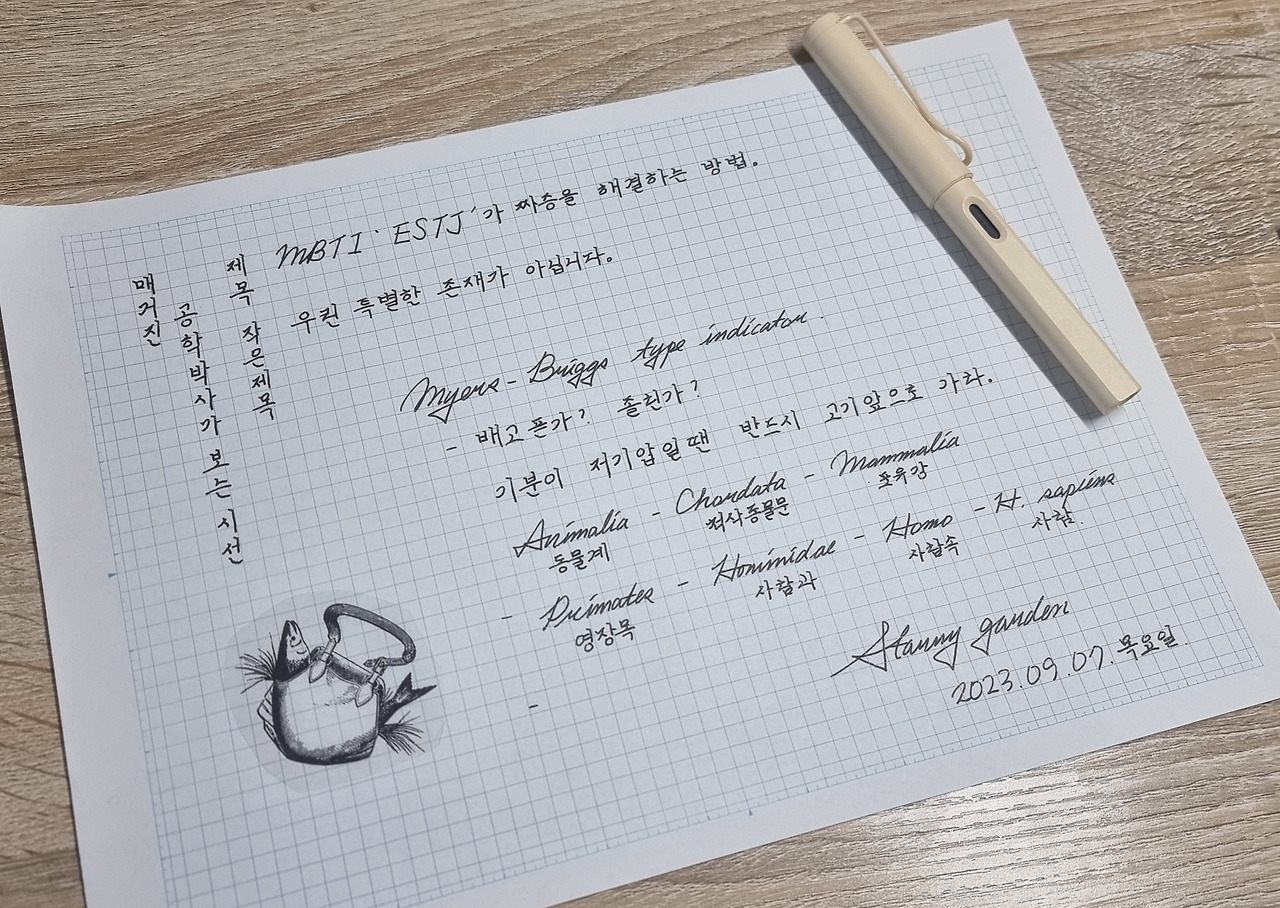 매거진
공학박사가 보는 시선
제목 작은제목
MBTI 'ESTJ'가 짜증을 해결하는 방법.
우린 특별한 존재가 아닙니다.
Myers-Briggs type indicator.
- 배고픈가? 졸린가?
기분이 저기압일땐 반드시 고기앞으로 가라.
Animalia - Chordata - Mammalia
동물계 척삭동물문 포유강
- Primates - Hominidae - Homo - H. sapiens
영장목 사람과 사람속 사람.
-
Stanny garden
2023.09.07. 목요일